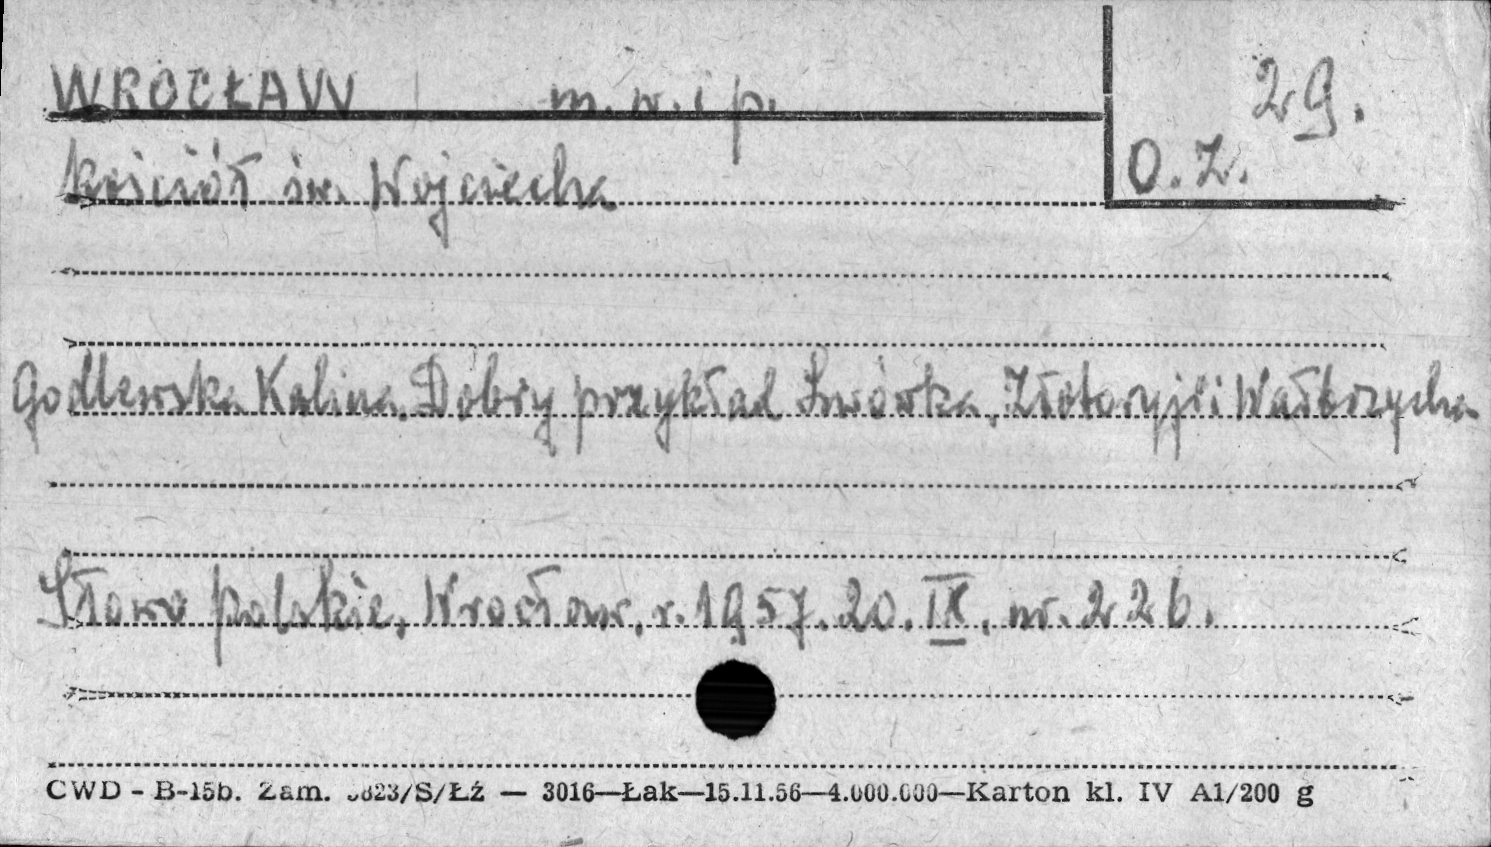 WROCŁAW m. w. i p.
29.
O. Z.
kościół św. Wojciecha
Godlewska Kalina. Dobry przykład Lwówka, Złotoryji i Wałbrzycha
Słowo polskie, Wrocław, r. 1957. 20. IX. nr. 226.
CWD - B-15b. Zam. 3823/S/Łź — 3016—Łak—15.11.56—4.000.000—Karton kl. IV A1/200 g